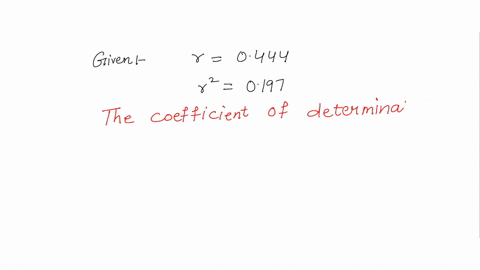 Given:- r = 0.444
r² = 0.197
The coefficient of determina